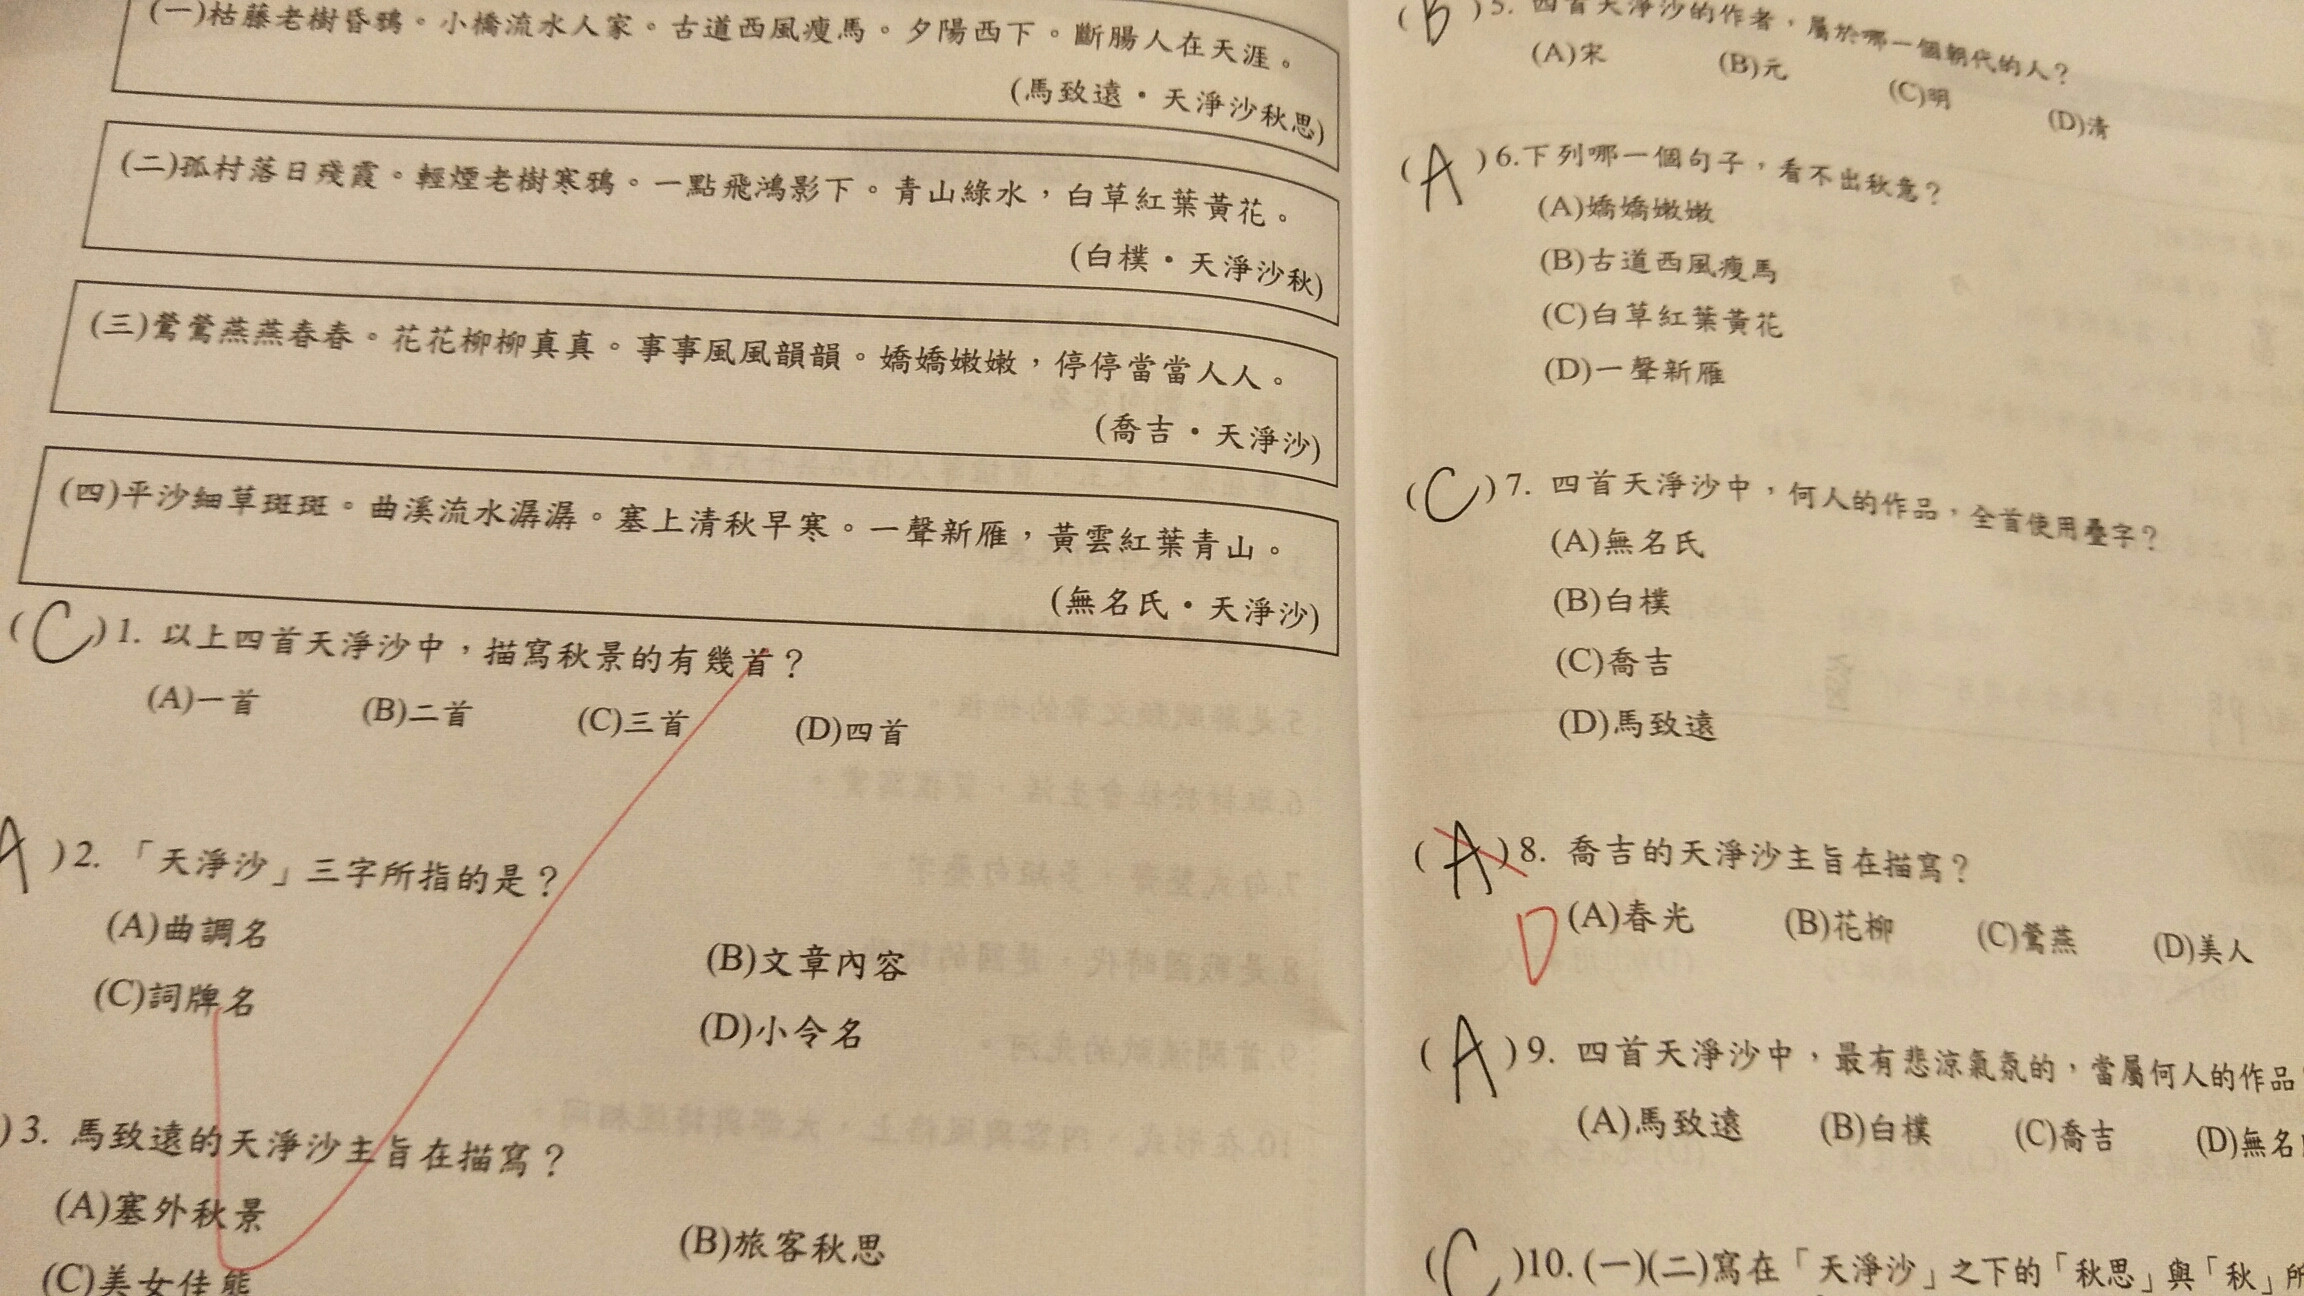 (一)枯藤老樹昏鴉。小橋流水人家。古道西風瘦馬。夕陽西下。斷腸人在天涯。
(馬致遠・天淨沙秋思)
(二)孤村落日殘霞。輕煙老樹寒鴉。一點飛鴻影下。青山綠水,白草紅葉黃花。
(白樸・天淨沙秋)
(三)鶯鶯燕燕春春。花花柳柳真真。事事風風韻韻。嬌嬌嫩嫩,停停當當人人。
(喬吉・天淨沙)
(四)平沙細草斑斑。曲溪流水潺潺。塞上清秋早寒。一聲新雁,黃雲紅葉青山。
(無名氏・天淨沙)
(C)1. 以上四首天淨沙中,描寫秋景的有幾首?
(A)一首 (B)二首 (C)三首 (D)四首
A)2. 「天淨沙」三字所指的是?
(A)曲調名 (B)文章內容
(C)詞牌名 (D)小令名
)3. 馬致遠的天淨沙主旨在描寫?
(A)塞外秋景 (B)旅客秋思
(C)美女佳態
(B)5. 四首天淨沙的作者,屬於哪一個朝代的人?
(A)宋 (B)元 (C)明 (D)清
(A)6.下列哪一個句子,看不出秋意?
(A)嬌嬌嫩嫩
(B)古道西風瘦馬
(C)白草紅葉黃花
(D)一聲新雁
(C)7. 四首天淨沙中,何人的作品,全首使用疊字?
(A)無名氏
(B)白樸
(C)喬吉
(D)馬致遠
(A)8. 喬吉的天淨沙主旨在描寫?
D (A)春光 (B)花柳 (C)鶯燕 (D)美人
(A)9. 四首天淨沙中,最有悲涼氣氛的,當屬何人的作品
(A)馬致遠 (B)白樸 (C)喬吉 (D)無名
(C)10. (一)(二)寫在「天淨沙」之下的「秋思」與「秋」所